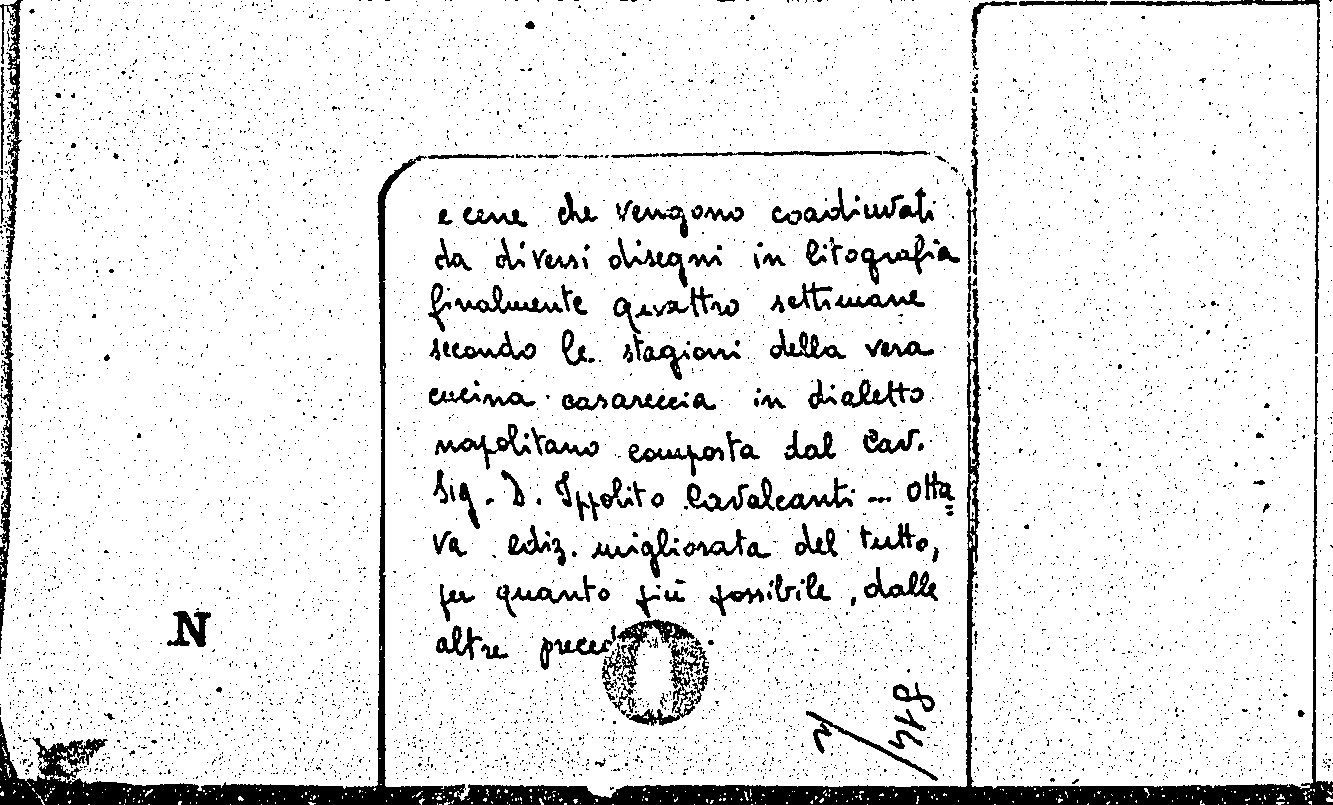 e cene che vengono coadiuvati
da diversi disegni in litografia
finalmente quattro settimane
secondo le stagioni della vera
cucina casareccia in dialetto
napolitano composta dal Cav.
Sig. D. Ippolito Cavalcanti ... otta
va ediz. migliorata del tutto,
per quanto più possibile, dalle
altre
N